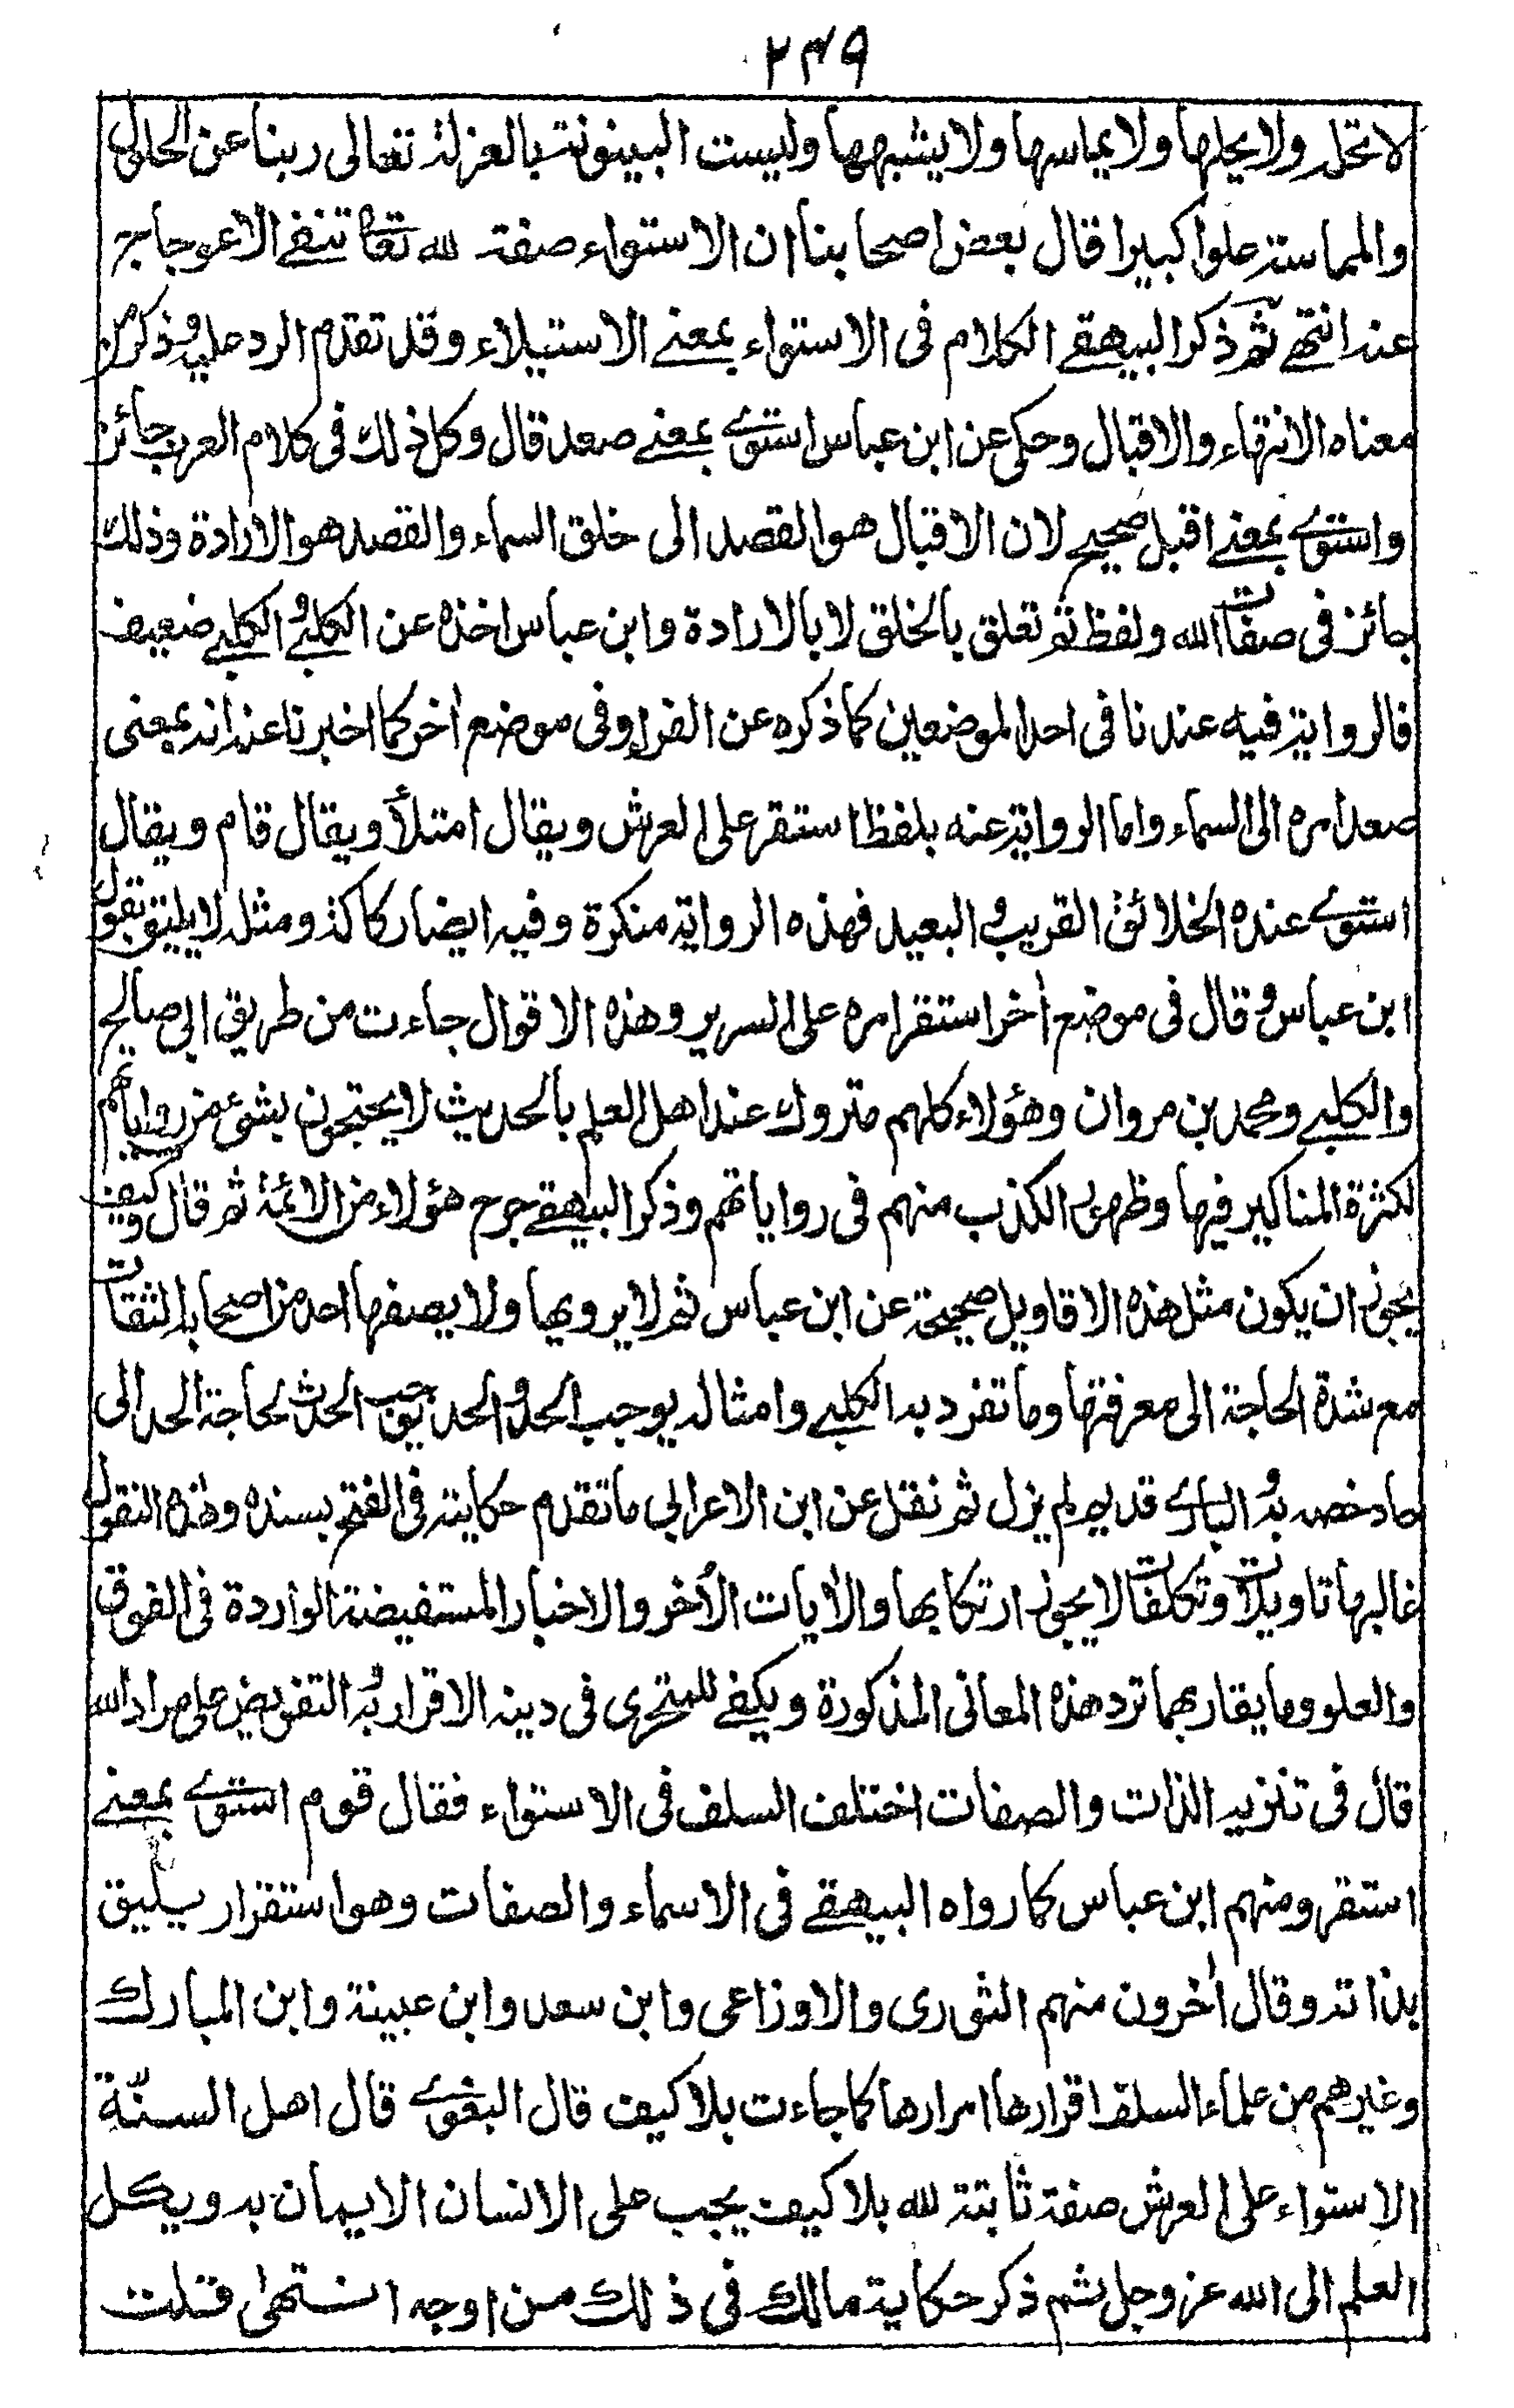 ٢٣٩
لا تحله ولا يحلها ولا يماسها ولا يشبهها وليست البينونة بالعزلة تعالى ربنا عن الحلول
والمماسة علوا كبيرا قال بعض اصحابنا ان الاستواء صفة لله تعا تنفے الاعوجاج
عنه انتهے ثم ذكر البيهقے الكلام فى الاستواء بمعنے الاستيلاء وقد تقدم الرد عليه وذكر من
معناه الانتهاء والاقبال وحكى عن ابن عباس استوے بمعنے صعد قال وكل ذلك فى كلام العرب جائز
واستوے بمعنے اقبل صحيح لان الاقبال هو القصد الى خلق السماء والقصد هو الارادة وذلك
جائز فى صفات الله ولفظ ثم تعلق بالخلق لا بالارادة وابن عباس اخذه عن الكلبے والكلبے ضعيف
فالرواية فيه عندنا فى احد الموضعين كما ذكره عن الفراء وفى موضع اٰخر كما اخبرنا عنه انه بمعنى
صعد امره الى السماء واما الرواية عنه بلفظ استقر على العرش ويقال امتلأ ويقال قام ويقال
استوے عنده الخلائق القريب والبعيد فهذه الرواية منكرة وفيه ايضا ركاكة ومثله لا يليق بقول
ابن عباس وقال فى موضع اٰخر استقر امره على السرير وهذه الاقوال جاءت من طريق ابى صالح
والكلبے ومحمد بن مروان وهؤلاء كلهم متروك عند اهل العلم بالحديث لا يحتجون بشئ من رواياتهم
لكثرة المناكير فيها وظهور الكذب منهم فى رواياتهم وذكر البيهقے جرح هؤلاء من الائمة ثم قال وكيف
يجوز ان يكون مثل هذه الاقاويل صحيحة عن ابن عباس ثم لا يرويها ولا يصفها احد من اصحابه الثقات
مع شدة الحاجة الى معرفتها وما تفرد به الكلبے وامثاله يوجب الحد والحد يوجب الحدث لحاجة الحد الى
حاد خصه به والبارے قديم لم يزل ثم نقل عن ابن الاعرابى ما تقدم حكايته فى الفتح بسنده وهذه النقول
غالبها تاويلات وتكلفات لا يجوز ارتكابها والاٰيات الأخر والاخبار المستفيضة الواردة فى الفوق
والعلو وما يقاربهما ترد هذه المعانى المذكورة ويكفے للمتحرى فى دينه الاقرار به والتفويض على مراد الله
قال فى تنزيه الذات والصفات اختلف السلف فى الاستواء فقال قوم استوے بمعنے
استقر ومنهم ابن عباس كما رواه البيهقے فى الاسماء والصفات وهو استقرار يليق
بذاته وقال اٰخرون منهم الثورى والاوزاعى وابن سعد وابن عيينة وابن المبارك
وغيرهم من علماء السلف اقرارها امرارها كما جاءت بلا كيف قال البغوے قال اهل السنّة
الاستواء على العرش صفة ثابتة لله بلا كيف يجب على الانسان الايمان به ويكل
العلم الى الله عز وجل ثم ذكر حكاية مالك فى ذلك من اوجه انتهىٰ قلت